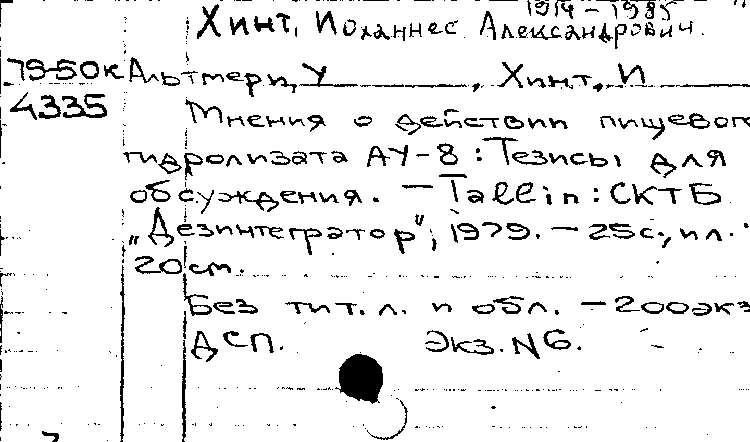 1914-1985
Хинт, Иоханнес Александрович.
79-50к Альтмери, У , Хинт, И
4335 Мнения о действии пищевог
гидролизата АУ-8: Тезисы для
обсуждения. - Tallin: СКТБ
„Дезинтегратор", 1979. - 25с., ил.
20см.
Без тит. л. и обл. - 200экз
ДСП. Экз. N6.